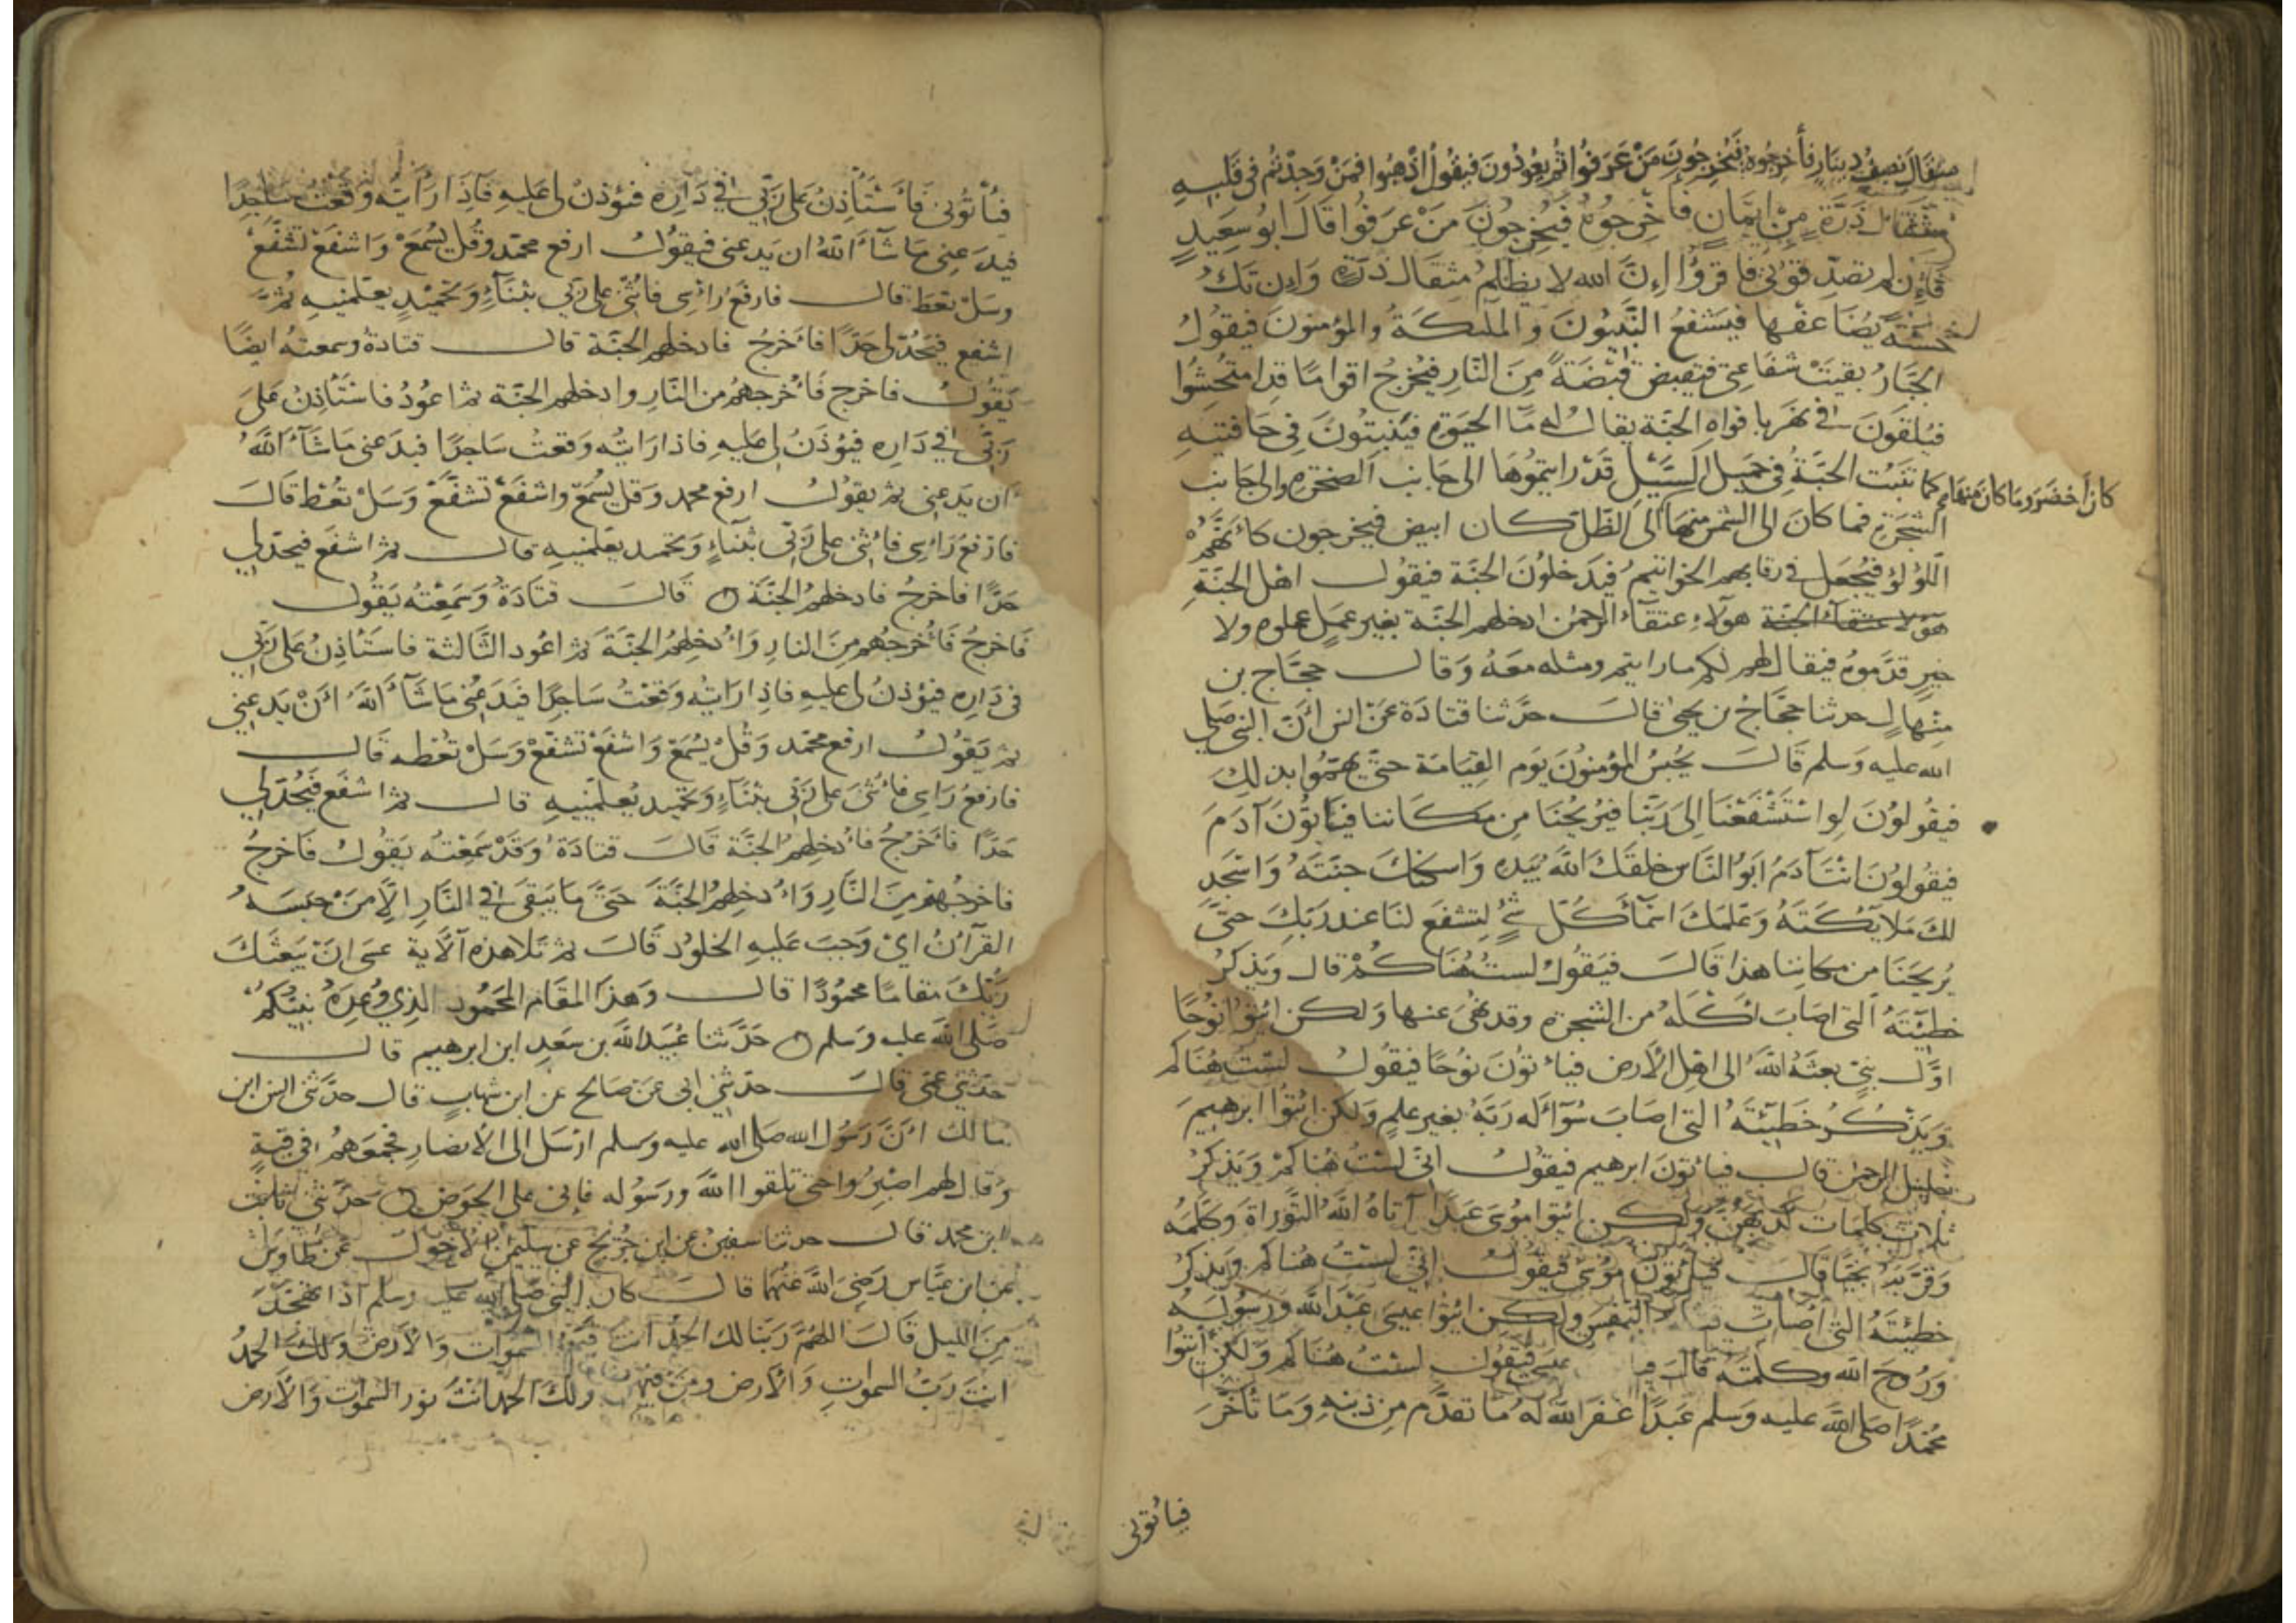 مثقال نصف دينار فأخرجوه فيخرجون من عرفوا ثم يعودون فيقول اذهبوا فمن وجدتم في قلبه
مثقال ذرة من ايمان فاخرجوه فيخرجون من عرفوا قال ابو سعيد
فان لم تصدقوني فاقرؤا ان الله لا يظلم مثقال ذرة وان تك
حسنة يضاعفها فيشفع النبيون والملئكة والمؤمنون فيقول
الجبار بقيت شفاعتي فيقبض قبضة من النار فيخرج اقواما قد امتحشوا
فيلقون في نهر بافواه الجنة يقال له ما الحيوة فينبتون في حافتيه
كما تنبت الحبة في حميل السيل قد رايتموها الى جانب الصخرة والى جانب
كان أخضر وما كان منها
الشجرة فما كان الى الشمس منها الى الظل كان ابيض فيخرجون كأنهم
اللؤلؤ فيجعل في رقابهم الخواتيم فيدخلون الجنة فيقول اهل الجنة
هؤلاء عتقاء الجنة هولاء عتقاء الرحمن ادخلهم الجنة بغير عمل عملوه ولا
خير قدموه فيقال لهم لكم ما رايتم ومثله معه وقال حجاج بن
منهال حدثنا حجاج بن يحيى قال حدثنا قتادة عن انس أن النبي صلى
الله عليه وسلم قال يحبس المؤمنون يوم القيامة حتى يهتموا بذلك
فيقولون لو استشفعنا الى ربنا فيريحنا من مكاننا فيأتون آدم
فيقولون انت آدم ابو الناس خلقك الله بيده واسكنك جنته واسجد
لك ملايكته وعلمك اسمآء كل شئ لتشفع لنا عند ربك حتى
يريحنا من مكاننا هذا قال فيقول لست هناكم قال ويذكر
خطيئته التي اصاب أكله من الشجرة وقد نهى عنها ولكن ائتوا نوحا
اول نبي بعثه الله الى اهل الأرض فيأتون نوحا فيقول لست هناكم
ويذكر خطيئته التي اصاب سؤاله ربه بغير علم ولكن ائتوا ابرهيم
خليل الرحمن قال فيأتون ابرهيم فيقول اني لست هناكم ويذكر
ثلاث كلمات كذبهن ولكن ائتوا موسى عبدا آتاه الله التوراة وكلمه
وقربه نجيا قال فيأتون موسى فيقول اني لست هناكم ويذكر
خطيئته التي اصاب النفس ولكن ائتوا عيسى عبد الله ورسوله
وروح الله وكلمته قال عيسى فيقول لست هناكم ولكن ائتوا
محمدا صلى الله عليه وسلم عبدا غفر الله له ما تقدم من ذنبه وما تأخر
فيأتوني
فيأتوني فأستأذن على ربي في داره فيؤذن لي عليه فاذا رأيته وقعت ساجدا
فيدعني ما شآء الله ان يدعني فيقول ارفع محمد وقل يسمع واشفع تشفع
وسل تعط قال فارفع رأسي فأثني على ربي بثنآء وتحميد يعلمنيه ثم
اشفع فيحد لي حدا فأخرج فادخلهم الجنة قال قتادة وسمعته ايضا
يقول فاخرج فأخرجهم من النار وادخلهم الجنة ثم اعود فاستأذن على
ربي في داره فيؤذن لي عليه فاذا رايته وقعت ساجدا فيدعني ما شآء الله
ان يدعني ثم يقول ارفع محمد وقل يسمع واشفع تشفع وسل تعط قال
فارفع رأسي فأثني على ربي بثنآء وتحميد يعلمنيه قال ثم اشفع فيحد لي
حدا فاخرج فادخلهم الجنة ٥ قال قتادة وسمعته يقول
فاخرج فأخرجهم من النار وأدخلهم الجنة ثم اعود الثالثة فاستأذن على ربي
في داره فيؤذن لي عليه فاذا رايته وقعت ساجدا فيدعني ما شآء الله أن يدعني
ثم يقول ارفع محمد وقل يسمع واشفع تشفع وسل تعطه قال
فارفع راسي فأثني على ربي بثنآء وتحميد يعلمنيه قال ثم اشفع فيحد لي
حدا فأخرج فأدخلهم الجنة قال قتادة وقد سمعته يقول فاخرج
فاخرجهم من النار وأدخلهم الجنة حتى ما يبقى في النار الا من حبسه
القرآن اي وجب عليه الخلود قال ثم تلا هذه الآية عسى ان يبعثك
ربك مقاما محمودا قال وهذا المقام المحمود الذي وعده نبيكم
صلى الله عليه وسلم ٥ حدثنا عبيد الله بن سعد ابن ابرهيم قال
حدثني عمي قال حدثني ابي عن صالح عن ابن شهاب قال حدثني انس ابن
مالك أن رسول الله صلى الله عليه وسلم ارسل الى الأنصار فجمعهم في قبة
وقال لهم اصبروا حتى تلقوا الله ورسوله فإني على الحوض ٥ حدثني ثابت
بن محمد قال حدثنا سفين عن ابن جريج عن سليمن الأحول عن طاوس
عن ابن عباس رضي الله عنهما قال كان النبي صلى الله عليه وسلم اذا تهجد
من الليل قال اللهم ربنا لك الحمد انت قيم السموات والأرض ولك الحمد
انت رب السموات والأرض ومن فيهن ولك الحمد انت نور السموات والأرض